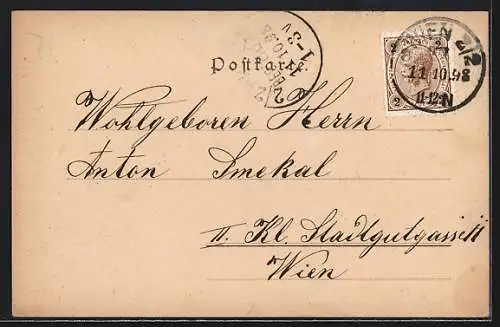 Postkarte.
WIEN 2/2
11.10.98
11-12
N
2 2
Wohlgeboren Herrn
Anton Smekal
II. Kl. Stadtgutgasse 11
Wien